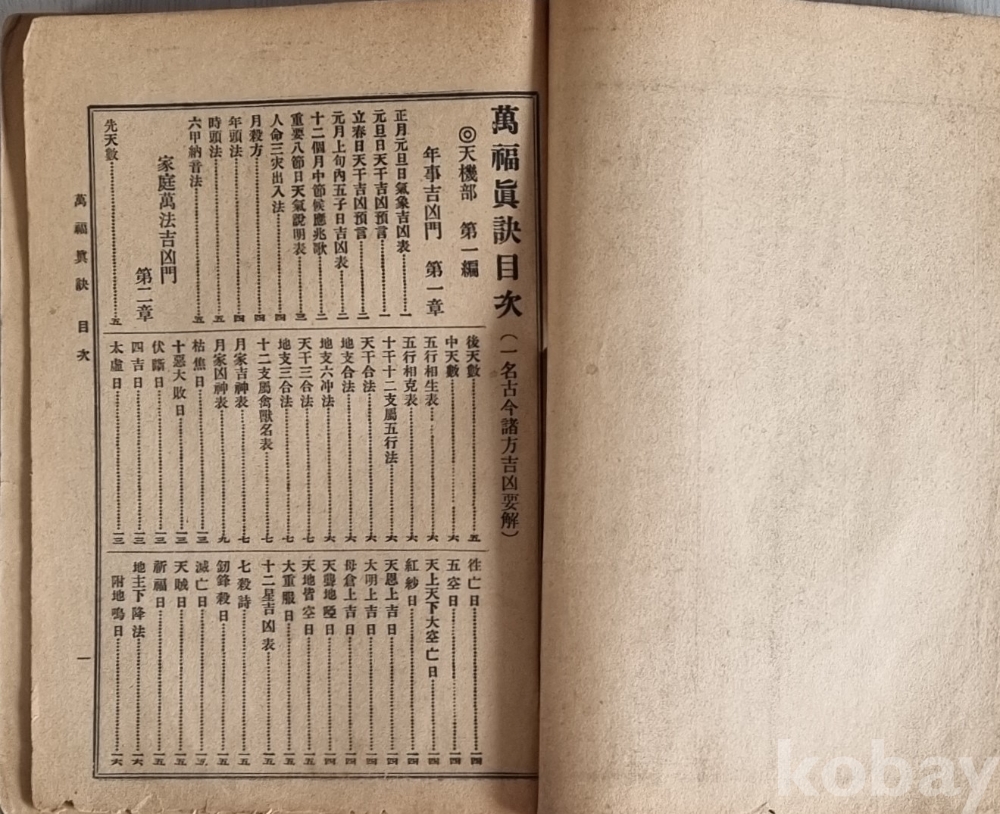 萬福眞訣目次(一名古今諸方吉凶要解)
◎天機部 第一編
年事吉凶門 第一章
正月元旦日氣象吉凶表 一
元旦日天干吉凶預言 一
立春日天干吉凶預言 二
元月上旬內五子日吉凶表 二
十二個月中節候應兆歌 二
重要八節日天氣說明表 三
人命三灾出入法 四
月殺方 四
年頭法 四
時頭法 五
六甲納音法 五
家庭萬法吉凶門 第二章
先天數 五
後天數 五
中天數 六
五行相生表 六
五行相克表 六
十干十二支屬五行法 六
天干合法 六
地支合法 六
地支六冲法 六
天干三合法 七
地支三合法 七
十二支屬禽獸名表 七
月家吉神表 七
月家凶神表 九
枯焦日 一三
十惡大敗日 一三
伏斷日 一三
四吉日 一三
太虛日 一三
徃亡日 一四
五空日 一四
天上天下大空亡日 一四
紅紗日 一四
天恩上吉日 一四
大明上吉日 一四
母倉上吉日 一四
天聾地啞日 一四
天地皆空日 一五
大重服日 一五
十二星吉凶表 一五
七殺詩 一五
劒鋒殺日 一五
滅亡日 一五
天賊日 一五
祈福日 一五
地主下降法 一六
附地鳴日 一六
萬福眞訣 目次
一
kobay